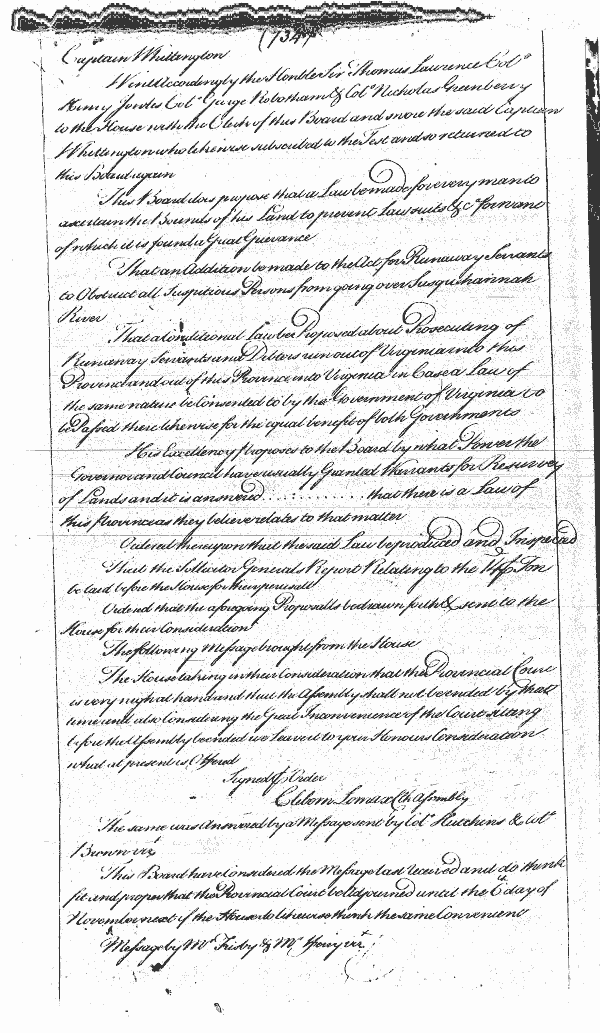 (734)
Captain Whittington
Went accordingly the Honble Sir Thomas Lawrence Colo
Henry Jowles Colo George Robotham & Colo Nicholas Greenberry
to the House with the Clerk of this Board and swore the said Captain
Whittington who likewise subscribed to the Test and so returned to
this Board again
This Board does propose that a Law be made for every man to
ascertain the Bounds of his Land to prevent Law suits &ca for want
of which it is found a Great Grievance
That an Addition be made to the Act for Runaway Servants
to Obstruct all Suspitious Persons from going over Susquehannah
River
That a Conditional Law be Proposed about Prosecuting of
Runaway Servants and Debtors run out of Virginia into this
Province and out of this Province into Virginia in Case a Law of
the same nature be Consented to by the Government of Virginia to
be Passed there likewise for the equal benefit of both Governments
His Excellency proposes to the Board by what Power the
Governor and Council have usually Granted Warrants for Reservey
of Lands and it is answered . . . . . . . . . . . . that there is a Law of
this Province as they believe relates to that matter
Ordered thereupon that the said Law be produced and Inspected
That the Sollicitor Generals Report Relating to the 4d ⅌ Ton
be laid before the House for their perusall
Ordered that the aforegoing Proposells be drawn forth & sent to the
House for their Consideration
The following Message brought from the House
The House taking in their Consideration that the Provincial Court
is very nigh at hand and that the Assembly shall not be ended by that
time and also Considering the Great Inconvenience of the Court sitting
before the Assembly be ended we Leave it to your Honours Consideration
what at present is Offered
Signed ⅌ Order
Cleborn Lomax Clk Assembly
The same was Answered by a Message sent by Colo Hutchins & Colo
Brown vizt
This Board have Considered the Message last received and do think
fit and proper that the Provincial Court be adjourned until the 6th day of
November next if the House do likewise think the same Convenient
Message by Mr Frisby & Mr vizt